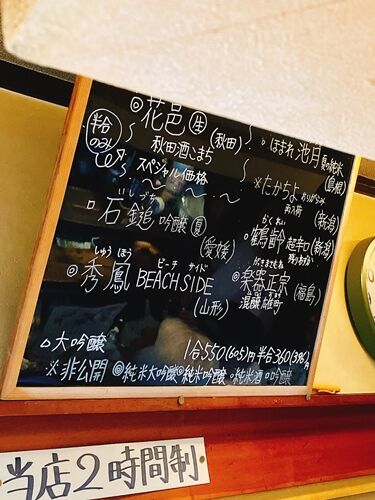 ◎花邑 生 (秋田)
半合のみ
秋田酒こまち
スペシャル価格
▫石鎚 吟醸 夏
いしづち
(愛媛)
しゅう ほう ビーチ サイド
◎秀鳳 BEACH SIDE
(山形)
▫ほまれ池月 夏の純米
(島根)
※たかちよ
(新潟)
かくれい
▫鶴齢 超辛口(新潟)
◎楽器正宗(福島)
混醸雄町
△大吟醸
1合550(605)円 半合360(396)円
※非公開 ◎純米大吟醸 ◎純米吟醸 ◦純米酒 ▫吟醸
当店2時間制